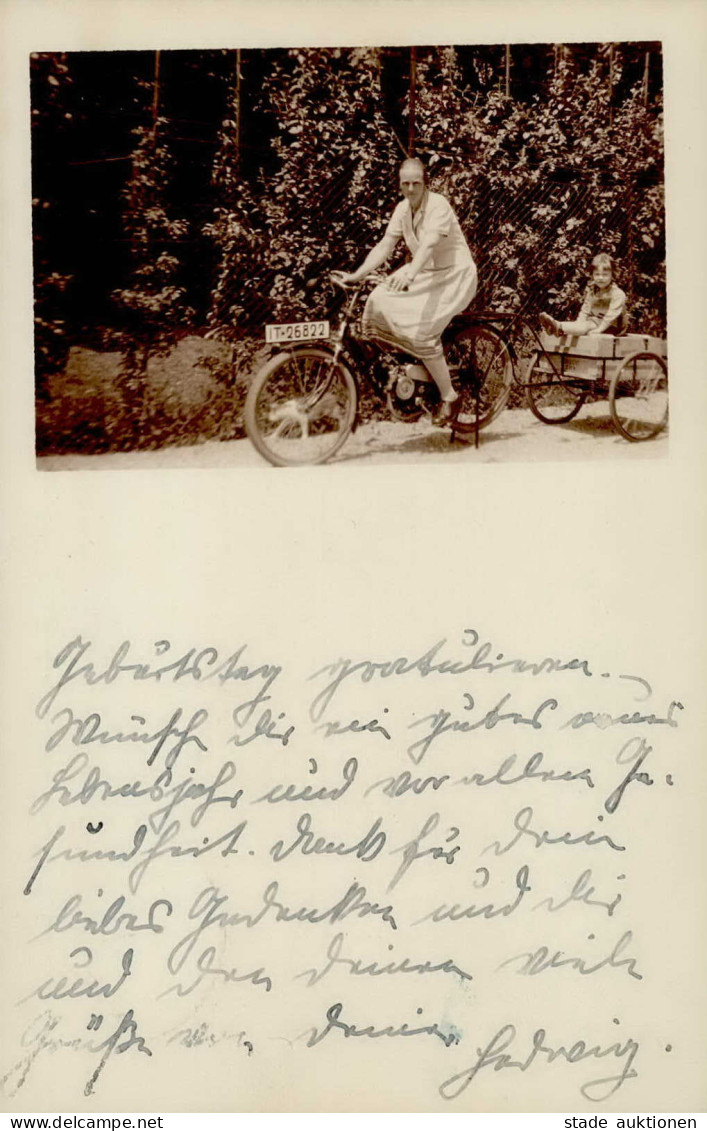 IT-26822
Geburtstag gratulieren. –
Wünsche Dir ein gutes neues
Lebensjahr und vor allem Ge-
sundheit. Dank für Dein
liebes Gedenken und Dir
und den deinen viele
Grüße von Deiner
Hedwig.
stade auktionen